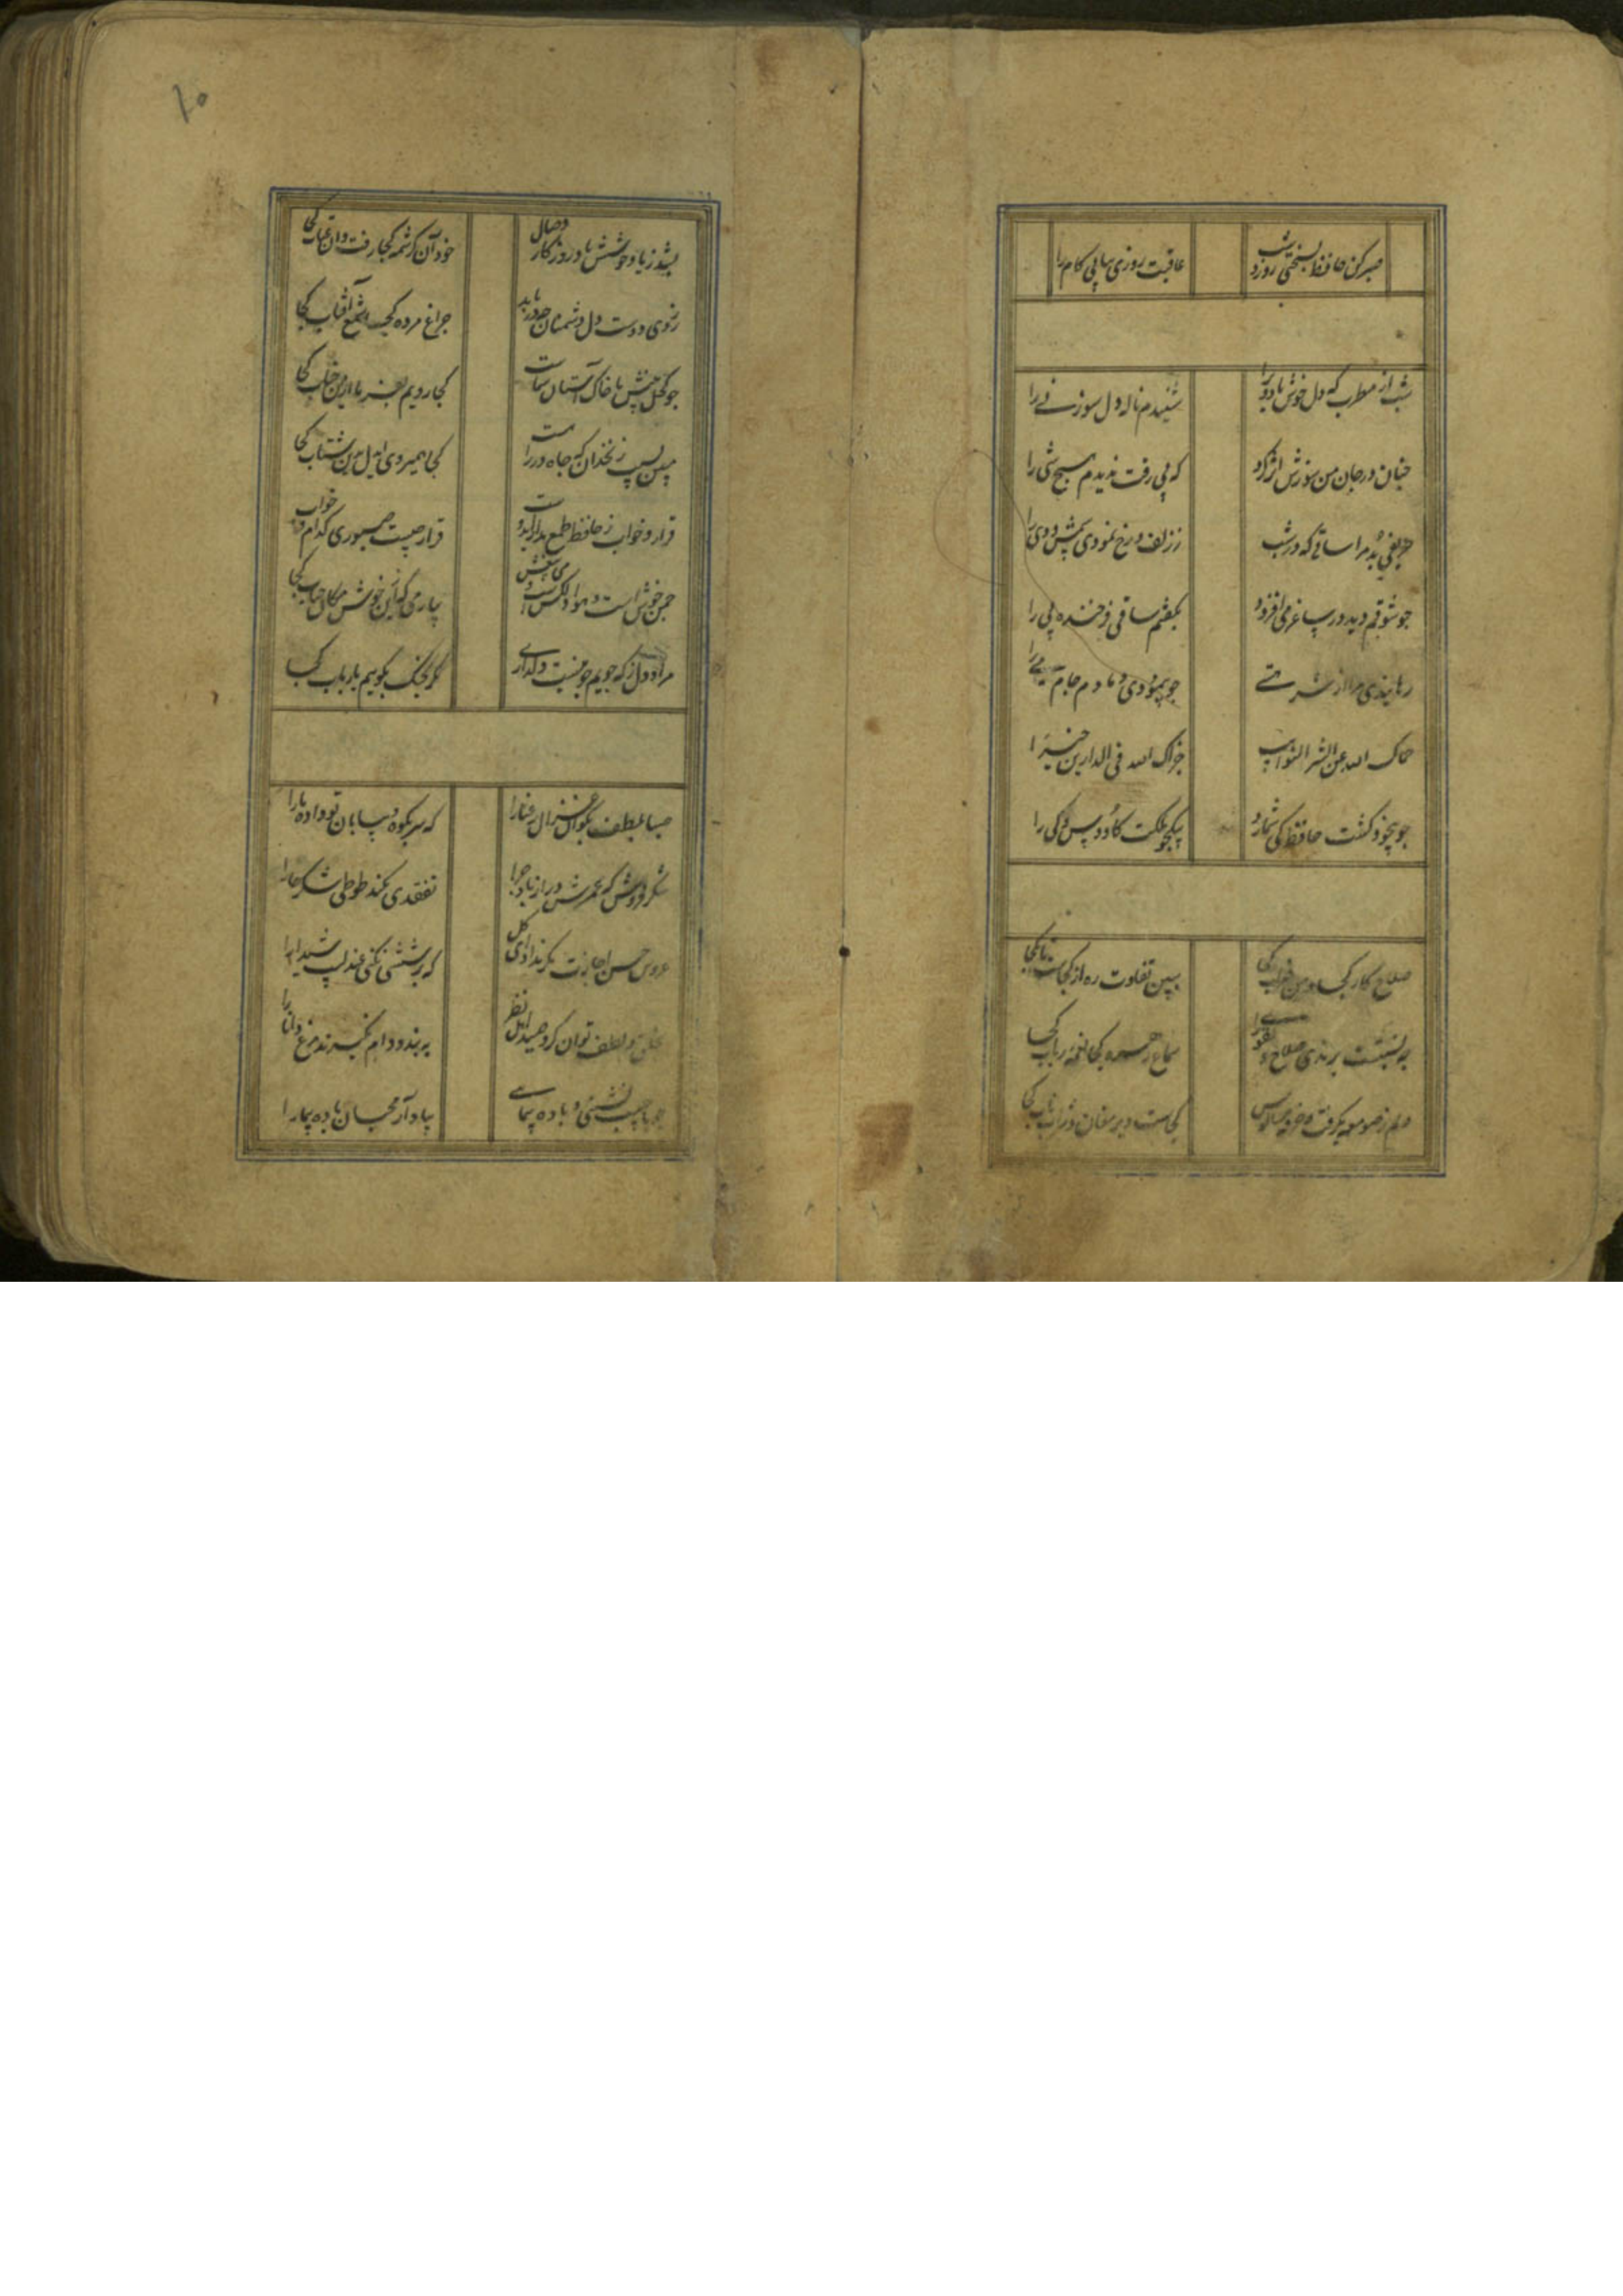 صبر کن حافظ بسختی روز و شب عاقبت روزی بیابی کام را
شب از مطرب که دل خوش باد ویرا شنیدم ناله دل سوز نی را
چنان در جان من سوزش اثر کرد که بی رقت ندیدم هیچ شی را
حریفی بد مرا ساقی که در شب ز زلف و رخ نمودی شمس و دی را
چو شوقم دید در ساغر می افزود بگفتم ساقی فرخنده پی را
رهانیدی مرا از شر هستی چو پیمودی دمادم جام می را
حماک الله عن شر النوائب جزاک الله فی الدارین خیرا
چو بیخود کشت حافظ کی شمارد بیکجو ملکت کاوس و کی را
صلاح کار کجا و من خراب کجا ببین تفاوت ره از کجاست تا بکجا
چه نسبتست برندی صلاح و تقوی را سماع وعظ کجا نغمه رباب کجا
دلم ز صومعه بگرفت و خرقه سالوس کجاست دیر مغان و شراب ناب کجا
۱۰
بشد ز یاد خوشش باد روزکار وصال خود آن کرشمه کجا رفت و آن عتاب کجا
ز روی دوست دل دشمنان چه دریابد چراغ مرده کجا شمع آفتاب کجا
چو کحل بینش ما خاک آستان شماست کجا رویم بفرما ازین جناب کجا
مبین بسیب زنخدان که چاه در راهست کجا همیروی ای دل بدین شتاب کجا
قرار و خواب ز حافظ طمع مدار ای دوست قرار چیست صبوری کدام و خواب کجا
چمن خوش است و هوا دلکش است و می بیغش
مراد دل ز که جویم چو نیست دلداری
صبا بلطف بکو آن غزال رعنا را که سر بکوه و بیابان تو داده ما را
شکر فروش که عمرش دراز باد چرا تفقدی نکند طوطی شکرخا را
غرور حسن اجازت مکر نداد ای کل که پرسشی نکنی عندلیب شیدا را
بخلق و لطف توان کرد صید اهل نظر به بند و دام نکیرند مرغ دانا را
چو با حبیب نشینی و باده پیمایی بیاد آر محبان باده پیما را